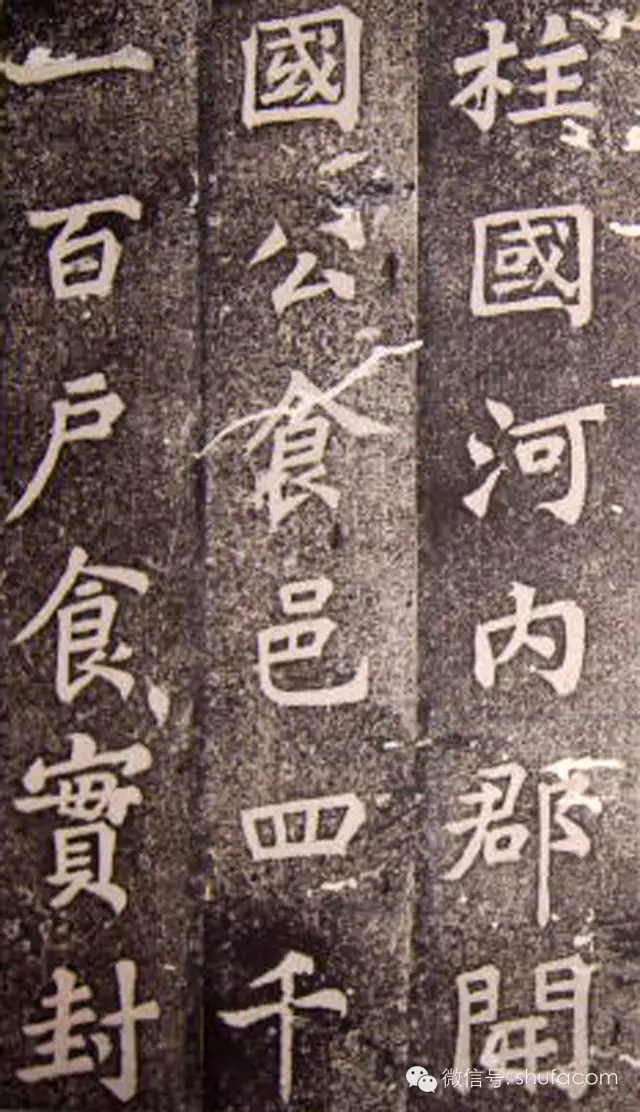 柱國河内郡開
國公食邑四千
一百戸食實封
微信号: shufacom